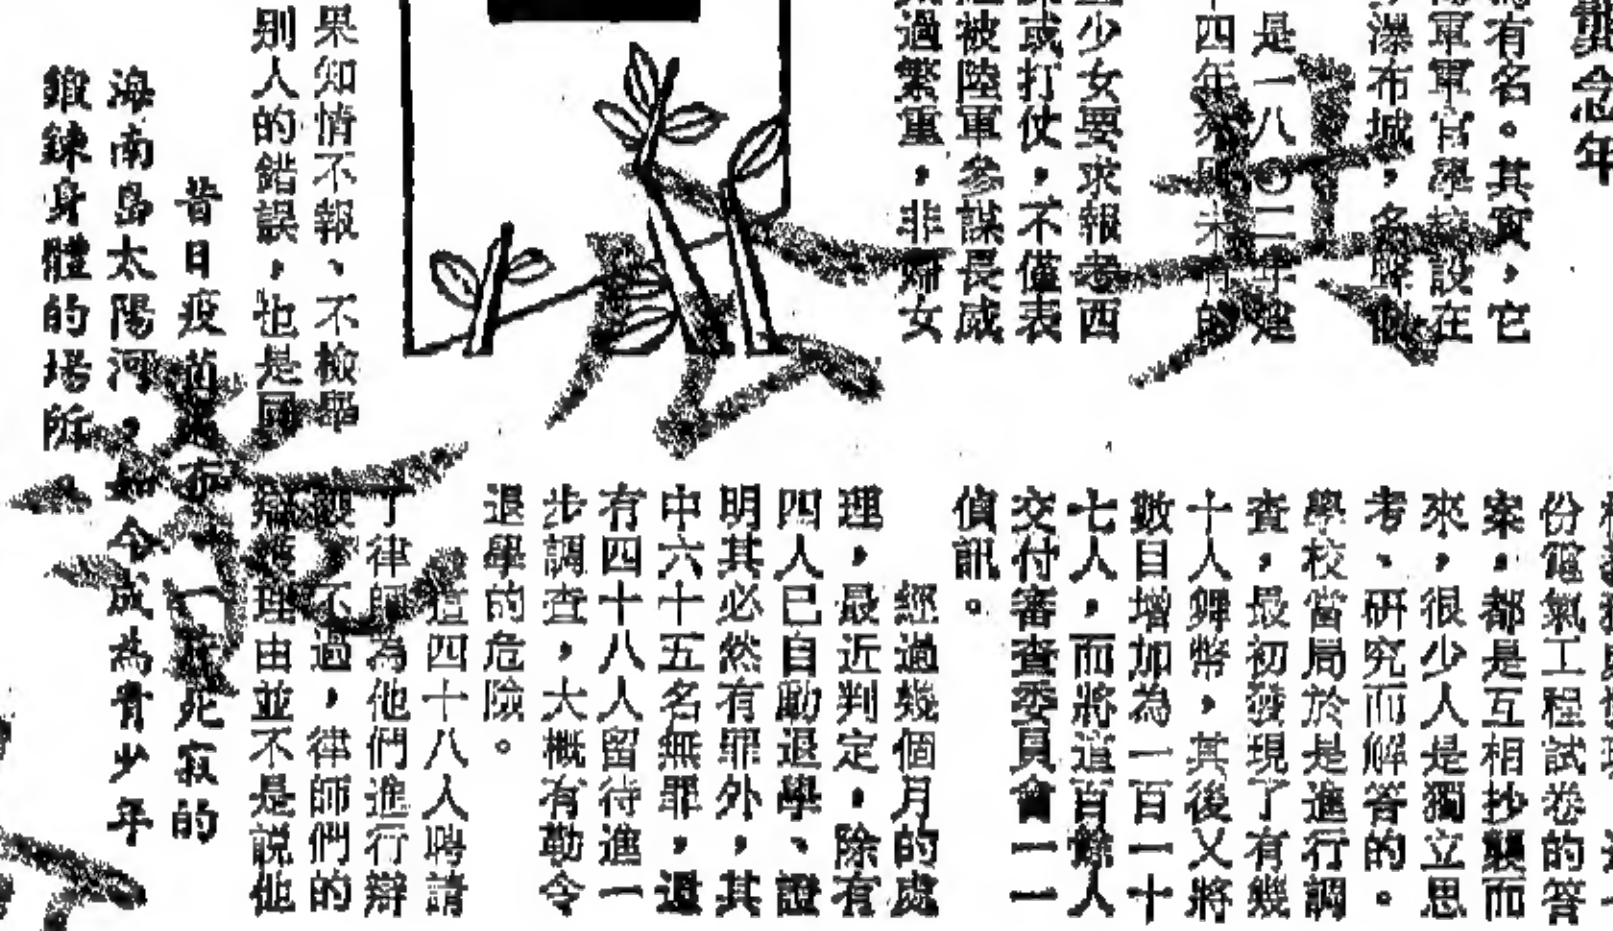 念年
有名。其實，它
軍軍官學校設在
瀑布城，名
是一八〇二年建
四年來 未有的
少女要求報考西
或打仗，不僅表
被陸軍參謀長威
過繁重，非婦女
份電氣工程試卷的答
案，都是互相抄襲而
來，很少人是獨立思
考、研究而解答的。
學校當局於是進行調
查，最初發現了有幾
十人舞幣，其後又將
數目增加為一百一十
七人，而將這百餘人
交付審查委員會一一
偵訊。
經過幾個月的處
理，最近判定，除有
四人已自動退學、證
明其必然有罪外，其
中六十五名無罪，還
有四十八人留待進一
步調查，大概有勒令
退學的危險。
這四十八人聘請
了律師為他們進行辯
護。不過，律師們的
辯護理由並不是說他
果知情不報、不檢舉
別人的錯誤，也是同
昔日疫 布、一片死寂的
海南島太陽河，如今成為青少年
鍛鍊身體的場所。